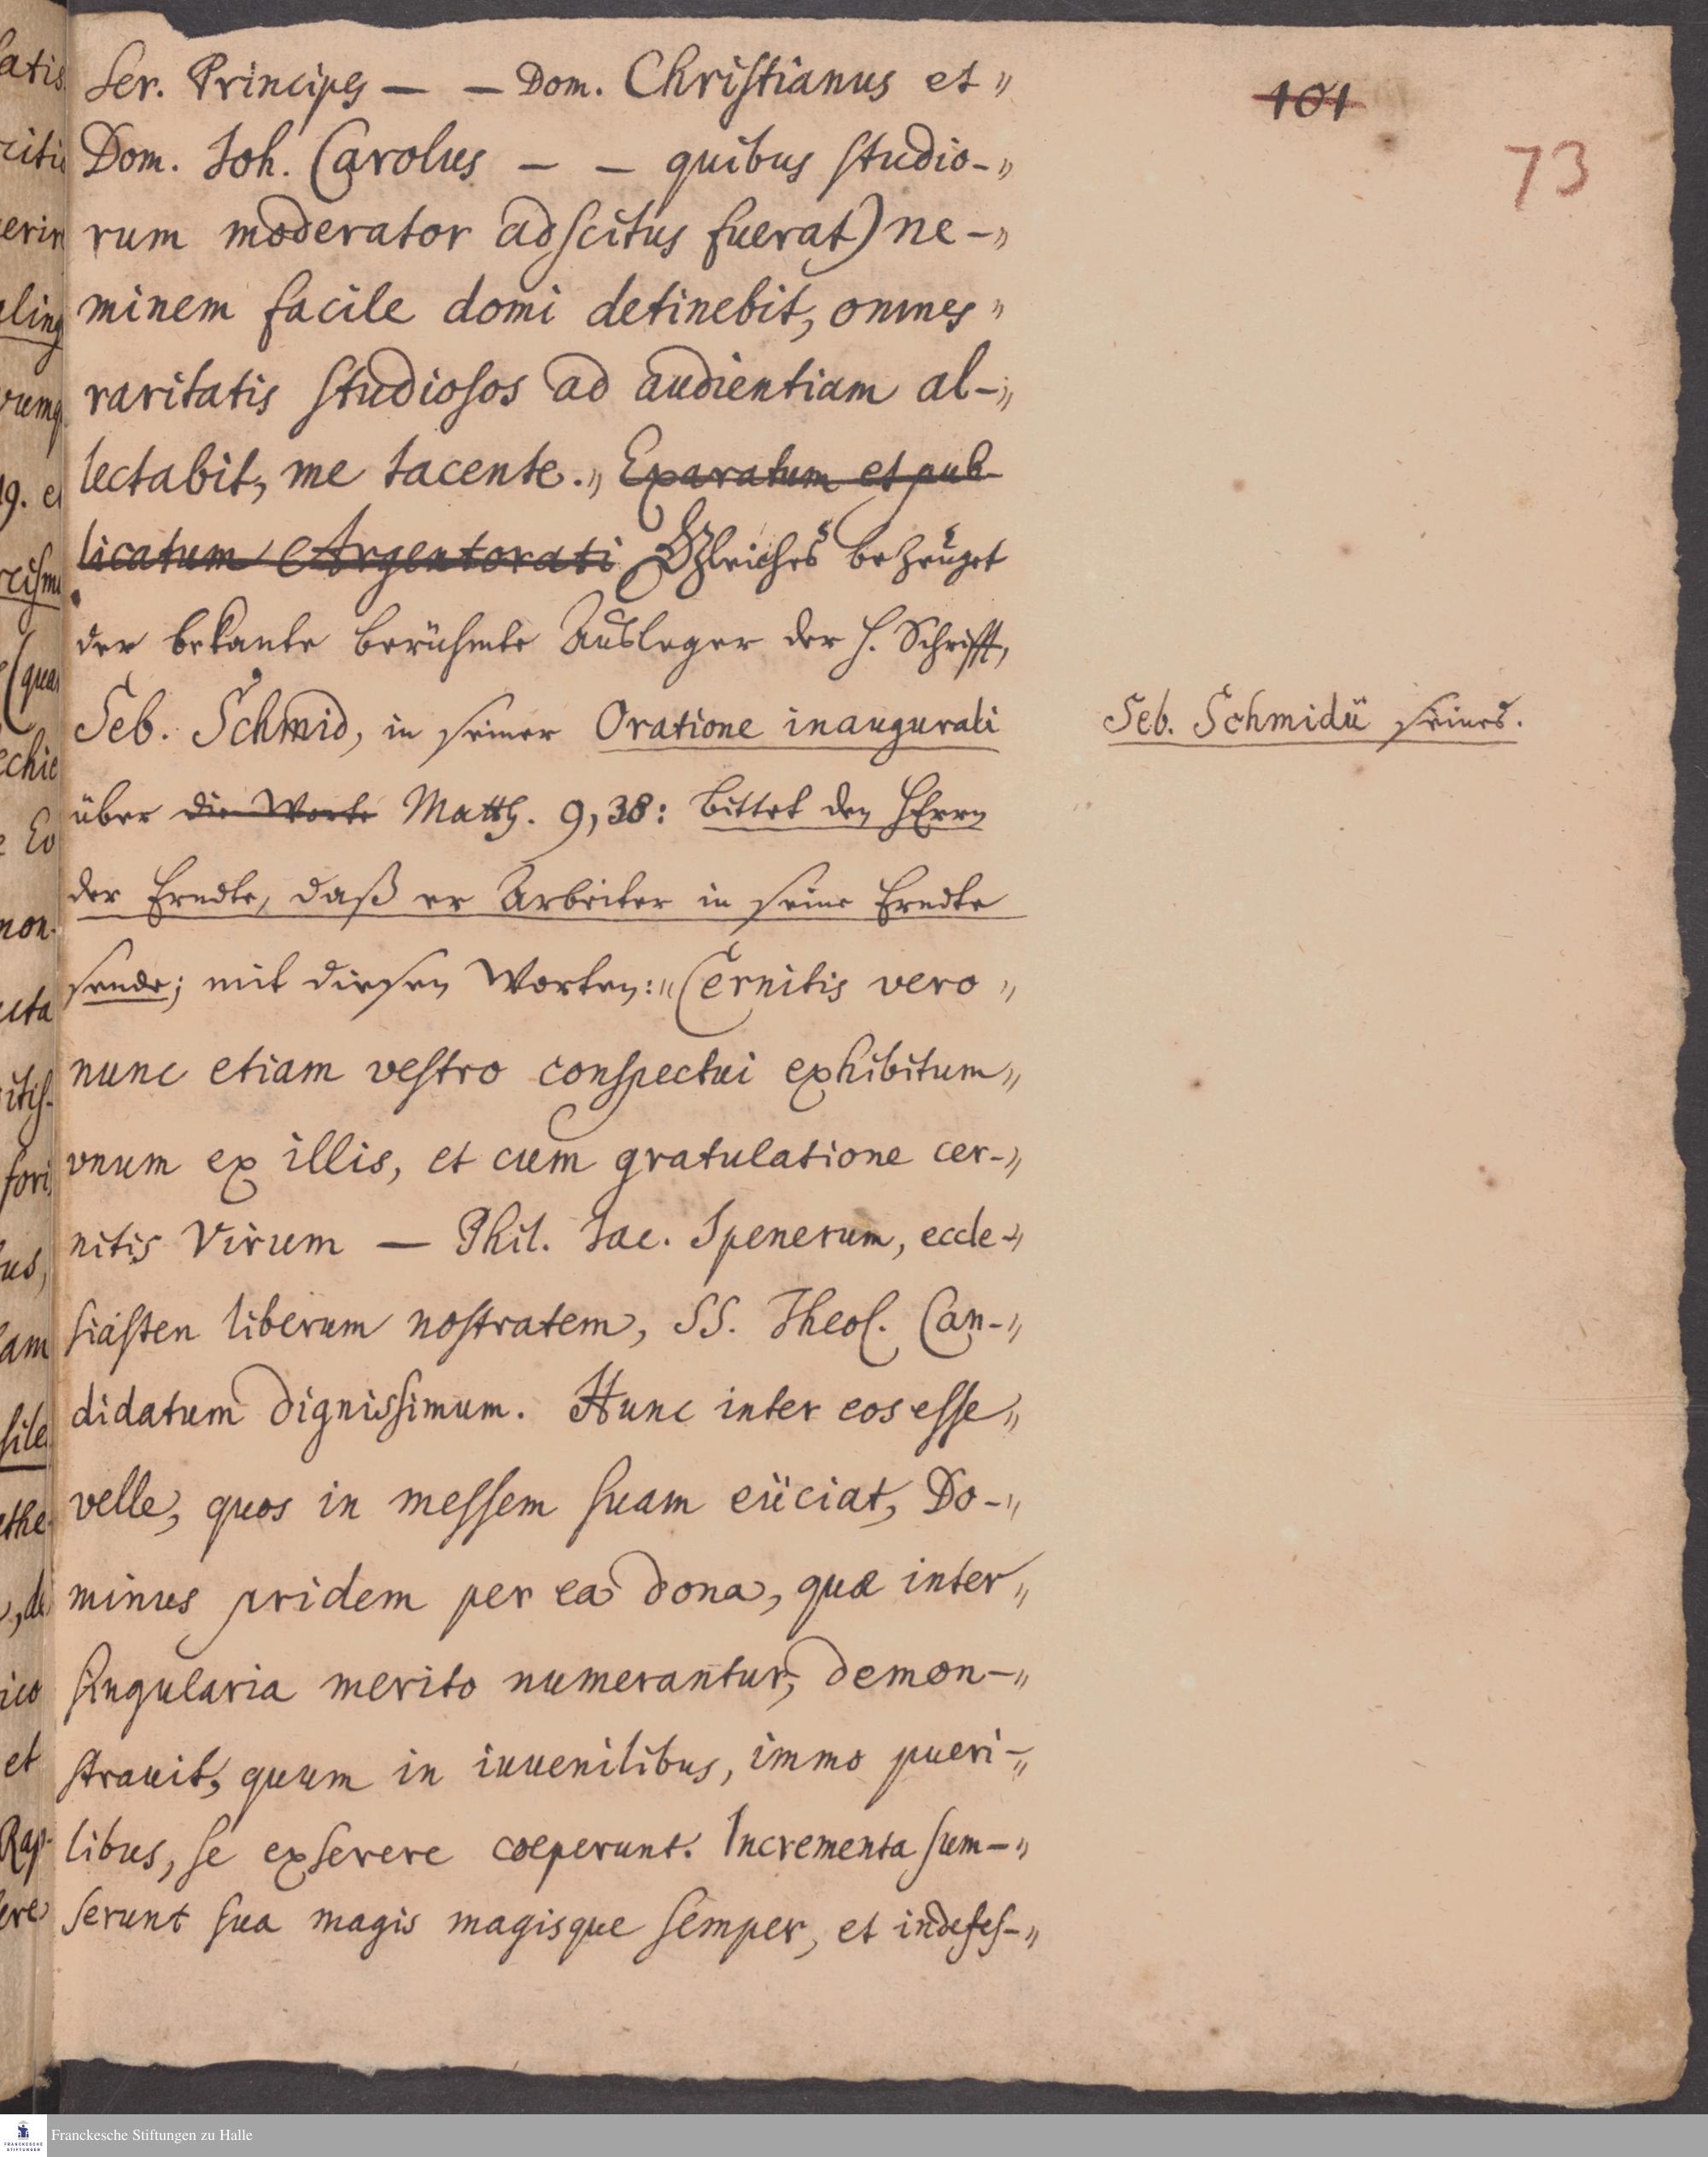 101
73
Ser. Principes — — Dom. Christianus et „
Dom. Joh. Carolus — — quibus studio-„
rum moderator adscitus fuerat) ne-„
minem facile domi detinebit, omnes „
raritatis studiosos ad audientiam al-„
lectabit, me tacente. „ Exaratum et pub-
licatum Argentorati Gleiches bezeuget
der bekante berühmte Ausleger der H. Schrifft,
Seb. Schmid, in seiner Oratione inaugurali
Seb. Schmidii seines.
über die Worte Matth. 9, 38: Bittet den HErrn
der Erndte, daß er Arbeiter in seine Erndte
sende; mit diesen Worten: „Cernitis vero „
nunc etiam vestro conspectui exhibitum „
vnum ex illis, et cum gratulatione cer-„
nitis Virum — Phil. Jac. Spenerum, eccle-„
siasten liberum nostratem, SS. Theol. Can-„
didatum dignissimum. Hunc inter eos esse „
velle, quos in messem suam eiiciat, Do-„
minus pridem per ea dona, quæ inter „
singularia merito numerantur, demon-„
strauit, quum in iuuenilibus, immo pueri-„
libus, se exserere coeperunt. Incrementa sum-„
serunt sua magis magisque semper, et indefes-„
Franckesche Stiftungen zu Halle